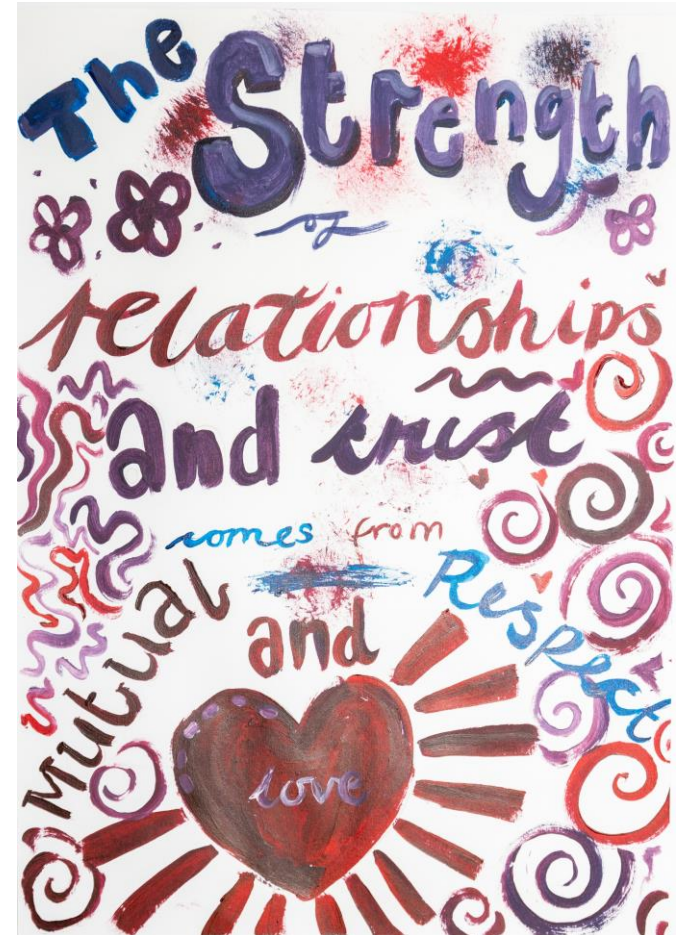 The
Strength
of
relationships
and trust
comes from
Mutual
Respect
and
love